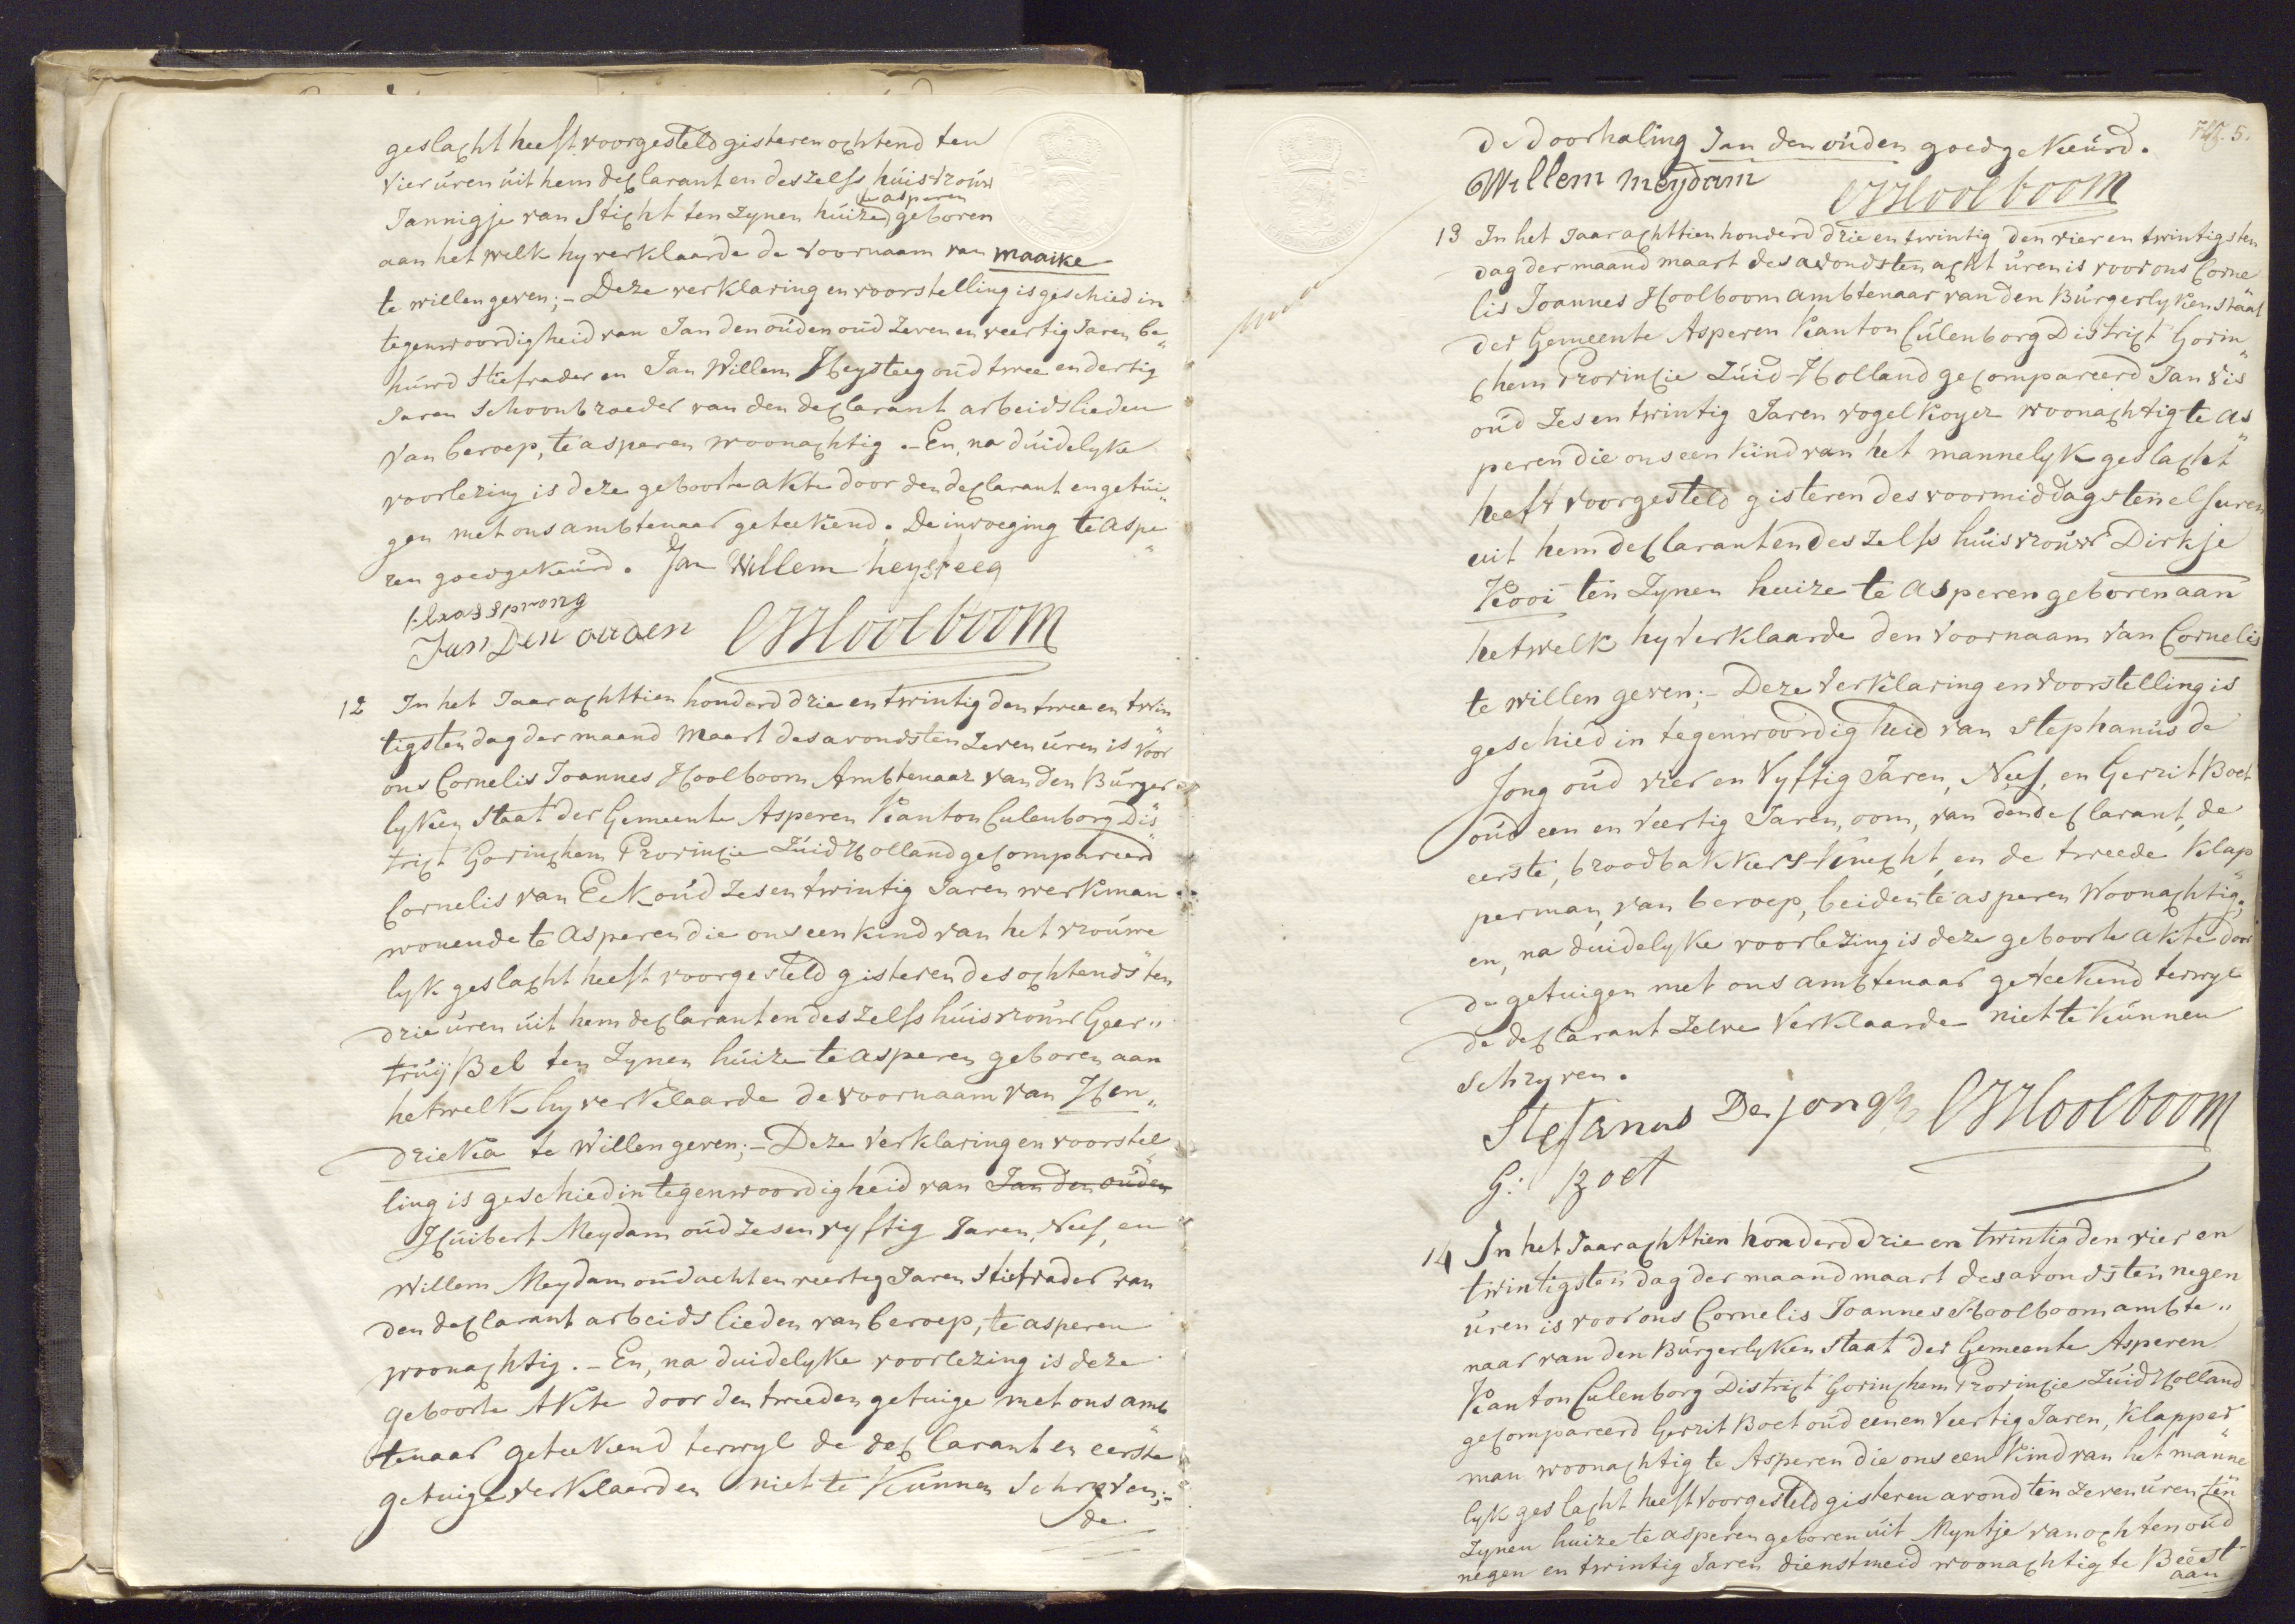 geslacht heeft voorgesteld gisteren ochtend ten
vier uren uit hem declarant en deszelfs huisvrouw
te asperen
Jannigje van Sticht ten zynen huize geboren
aan het welk hy verklaarde de voornaam van Maaike
te willen geven;- Deze verklaring en voorstelling is geschied in
tegenwoordigheid van Jan den ouden oud zeven en veertig Jaren be„
huwd stiefvader en Jan Willem Heysteeg oud twee en dertig
Jaren Schoonbroeder van den declarant arbeidslieden
van beroep, te asperen woonachtig.- En, na duidelyke
voorlezing is deze geboorte akte door den declarant en getui„
gen met ons ambtenaar geteekend. De invoeging te aspe„
ren goedgekeurd. Jan Willem heysteeg
klaas sprong
Jan Den ouden CJHoolboom
12 In het Jaar achttien honderd drie en twintig den twee en twin„
tigsten dag der maand Maart des avonds ten zeven uren is voor
ons Cornelis Joannes Hoolboom Ambtenaar van den Burger„
lyken Staat der Gemeente Asperen Kanton Culenborg Dis„
trict Gorinchem Provincie Zuid Holland gecompareerd
Cornelis van Eck oud zes en twintig Jaren werkman
wonende te Asperen die ons een kind van het vrouwe„
lyk geslacht heeft voorgesteld gisteren des ochtends ten
drie uren uit hem declarant en deszelfs huisvrouw Geer„
truij Bel ten zynen huize te asperen geboren aan
hetwelk hy verklaarde de voornaam van Hen„
drieka te willen geven;- Deze verklaring en voorstel„
ling is geschied in tegenwoordigheid van Jan den ouden
Huibert Meydam oud zes en vyftig Jaren, Neef, en
Willem Meydam oud acht en veertig Jaren Stiefvader van
den declarant arbeidslieden van beroep, te asperen
woonachtig.- En, na duidelyke voorlezing is deze
geboorte Akte door den tweeden getuige met ons amb„
tenaar geteekend terwyl de declarant en eerste
getuige verklaarden niet te kunnen Schryven;-
de
Fol. 5.
de doorhaling Jan den ouden goedgekeurd.
Willem Meydam CJHoolboom
13 In het Jaar achttien honderd drie en twintig den vier en twintigsten
dag der maand maart des avonds ten acht uren is voor ons Corne„
lis Joannes Hoolboom ambtenaar van den Burgerlyken staat
der Gemeente Asperen Kanton Culenborg District Gorin„
chem Provincie Zuid-Holland gecompareerd Jan Vis
oud zes en twintig Jaren vogelkoyer woonachtig te as„
peren die ons een kind van het mannelyk geslacht
heeft voorgesteld gisteren des voormiddags ten elf uren
uit hem declarant en deszelfs huisvrouw Dirkje
Kooi ten zynen huize te asperen geboren aan
hetwelk hy verklaarde den voornaam van Cornelis
te willen geven;- Deze verklaring en voorstelling is
geschied in tegenwoordigheid van Stephanus de
Jong oud vier en vyftig Jaren, Neef, en Gerrit Boet
oud een en veertig Jaren, oom, van den declarant, de
eerste, broodbakkers-knecht, en de tweede klap„
perman, van beroep, beiden te asperen woonachtig;
en, na duidelyke voorlezing is deze geboorte akte door
de getuigen met ons ambtenaar geteekend terwyl
de declarant zelve verklaarde niet te kunnen
schryven.
Stefanus De jongh CJHoolboom
G: Boet
14 In het Jaar achttien honderd drie en twintig den vier en
twintigsten dag der maand maart des avonds ten negen
uren is voor ons Cornelis Joannes Hoolboom ambte„
naar van den Burgerlyken Staat der Gemeente Asperen
Kanton Culenborg District Gorinchem Provincie Zuid Holland
gecompareerd Gerrit Boet oud een en veertig Jaren, klapper„
man woonachtig te Asperen die ons een kind van het manne„
lyk geslacht heeft voorgesteld gisteren avond ten zeven uren ten
zynen huize te asperen geboren uit Myntje van ochten oud
negen en twintig Jaren dienstmeid woonachtig te Beest
aan